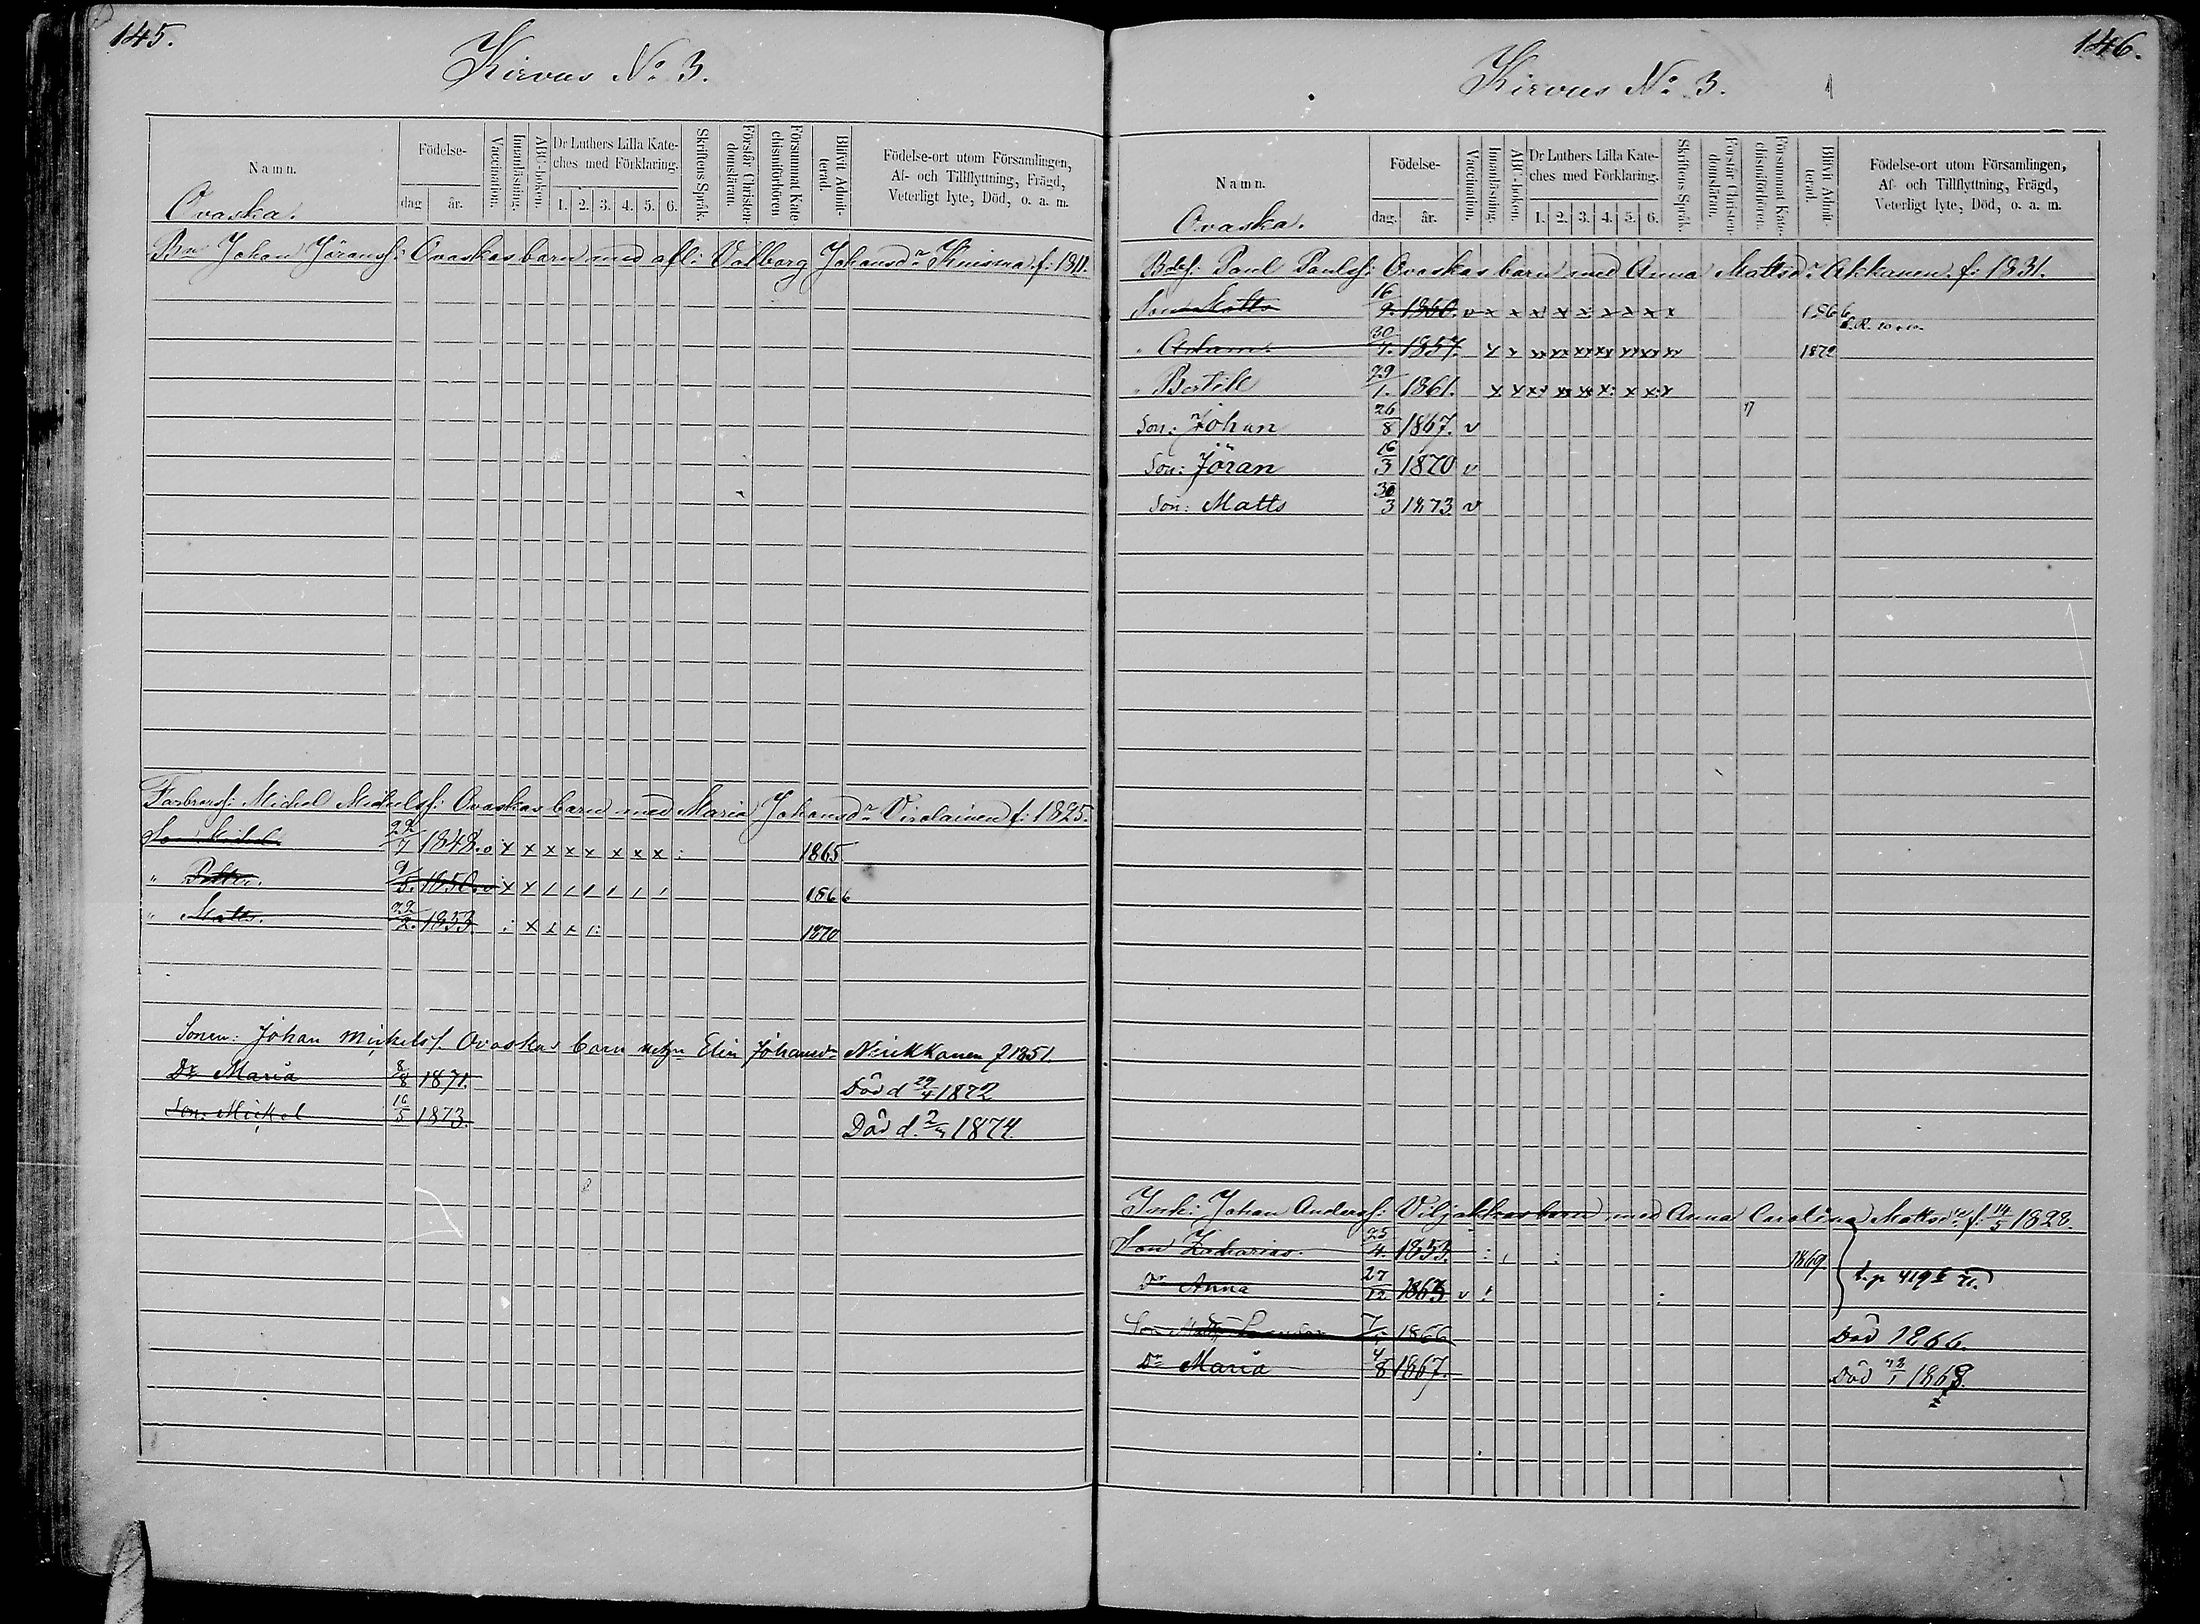 145.
Kirvus No 3.
Namn.
Födelse-
dag
år.
Vaccination.
Innanläsning.
ABC-boken.
Dr Luthers Lilla Kate-
ches med Förklaring.
1. 2. 3. 4. 5. 6.
Skriftens Språk.
Förstår Christen-
domsläran.
Försummat Kate-
chismiförhören
Blifvit Admit-
terad.
Födelse-ort utom Församlingen,
Af- och Tillflyttning, Frägd,
Veterligt lyte, Död, o. a. m.
Ovaska.
Bn Johan Göranss: Ovaskas barn med afl: Valborg Johansdr Kuisma f: 1811.
Farbrorss: Michel Michelss: Ovaskas barn med Maria Johansdr Virolainen f: 1825.
Son Michel 22/7 1848. v x x x x x x x x : 1865
" Petter. 9/5. 1850. v x x 1866
" Matts. 22/2. 1853. 1870
Sonen: Johan Mickelss. Ovaskas barn Elin Johansdr Neukkanen f 1851.
Dr Maria 8/8 1871. Död d 29/4 1872
Son: Mickel 16/5 1873. Död d. 1874.
146.
Kirvus No 3.
Namn.
Födelse-
dag.
år.
Vaccination.
Innanläsning.
ABC-boken.
Dr Luthers Lilla Kate-
ches med Förklaring.
1. 2. 3. 4. 5. 6.
Skriftens Språk.
Förstår Christen-
domsläran.
Försummat Kate-
chismiförhören.
Blifvit Admit-
terad.
Födelse-ort utom Församlingen,
Af- och Tillflyttning, Frägd,
Veterligt lyte, Död, o. a. m.
Ovaska.
Bdrs: Paul Paulss: Ovaskas barn med Anna Mattsdr Akkanen f: 1831.
Son Matts 16/9. 1850. v x x x x x x x x x 1866
" Adam. 30/7. 1857. 1872
" Bertil 29/1. 1861.
Son: Johan 26/8 1867. v
Son: Jöran 16/3 1870 v
Son: Matts 30/3 1873. v
Inh: Johan Anderss: Viljakkas barn med Anna Carolina Mattsdr f: 14/5 1828.
Son Zacharias. 25/4. 1853. 1869.
Dr Anna 27/12 1863 v p 419
Son 1866 Död 1866.
Dr Maria 4/8 1867. Död 1868.